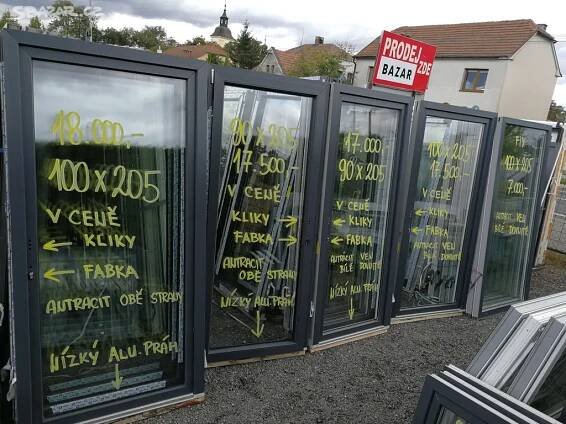 SBAZAR.CZ
PRODEJ
ZDE
BAZAR
18.000,-
100 x 205
V CENĚ
← KLIKY
← FABKA
ANTRACIT OBĚ STRANY
NÍZKÝ ALU. PRÁH
90 x 205
17.500,-
V CENĚ
KLIKY →
FABKA →
ANTRACIT
OBĚ STRANY
NÍZKÝ ALU. PRÁH
17.000,
90 x 205
V CENĚ
← KLIKY
← FABKA
ANTRACIT VEN
BÍLÉ DOVNITŘ
NÍZKÝ ALU.
100 x 205
17.500,-
V CENĚ
← KLIKY
← FABKA
ANTRACIT VEN
BÍLÉ DOVNITŘ
FIX
100 x 205
7.000,-
ANTRACIT VEN
BÍLÉ DOVNITŘ